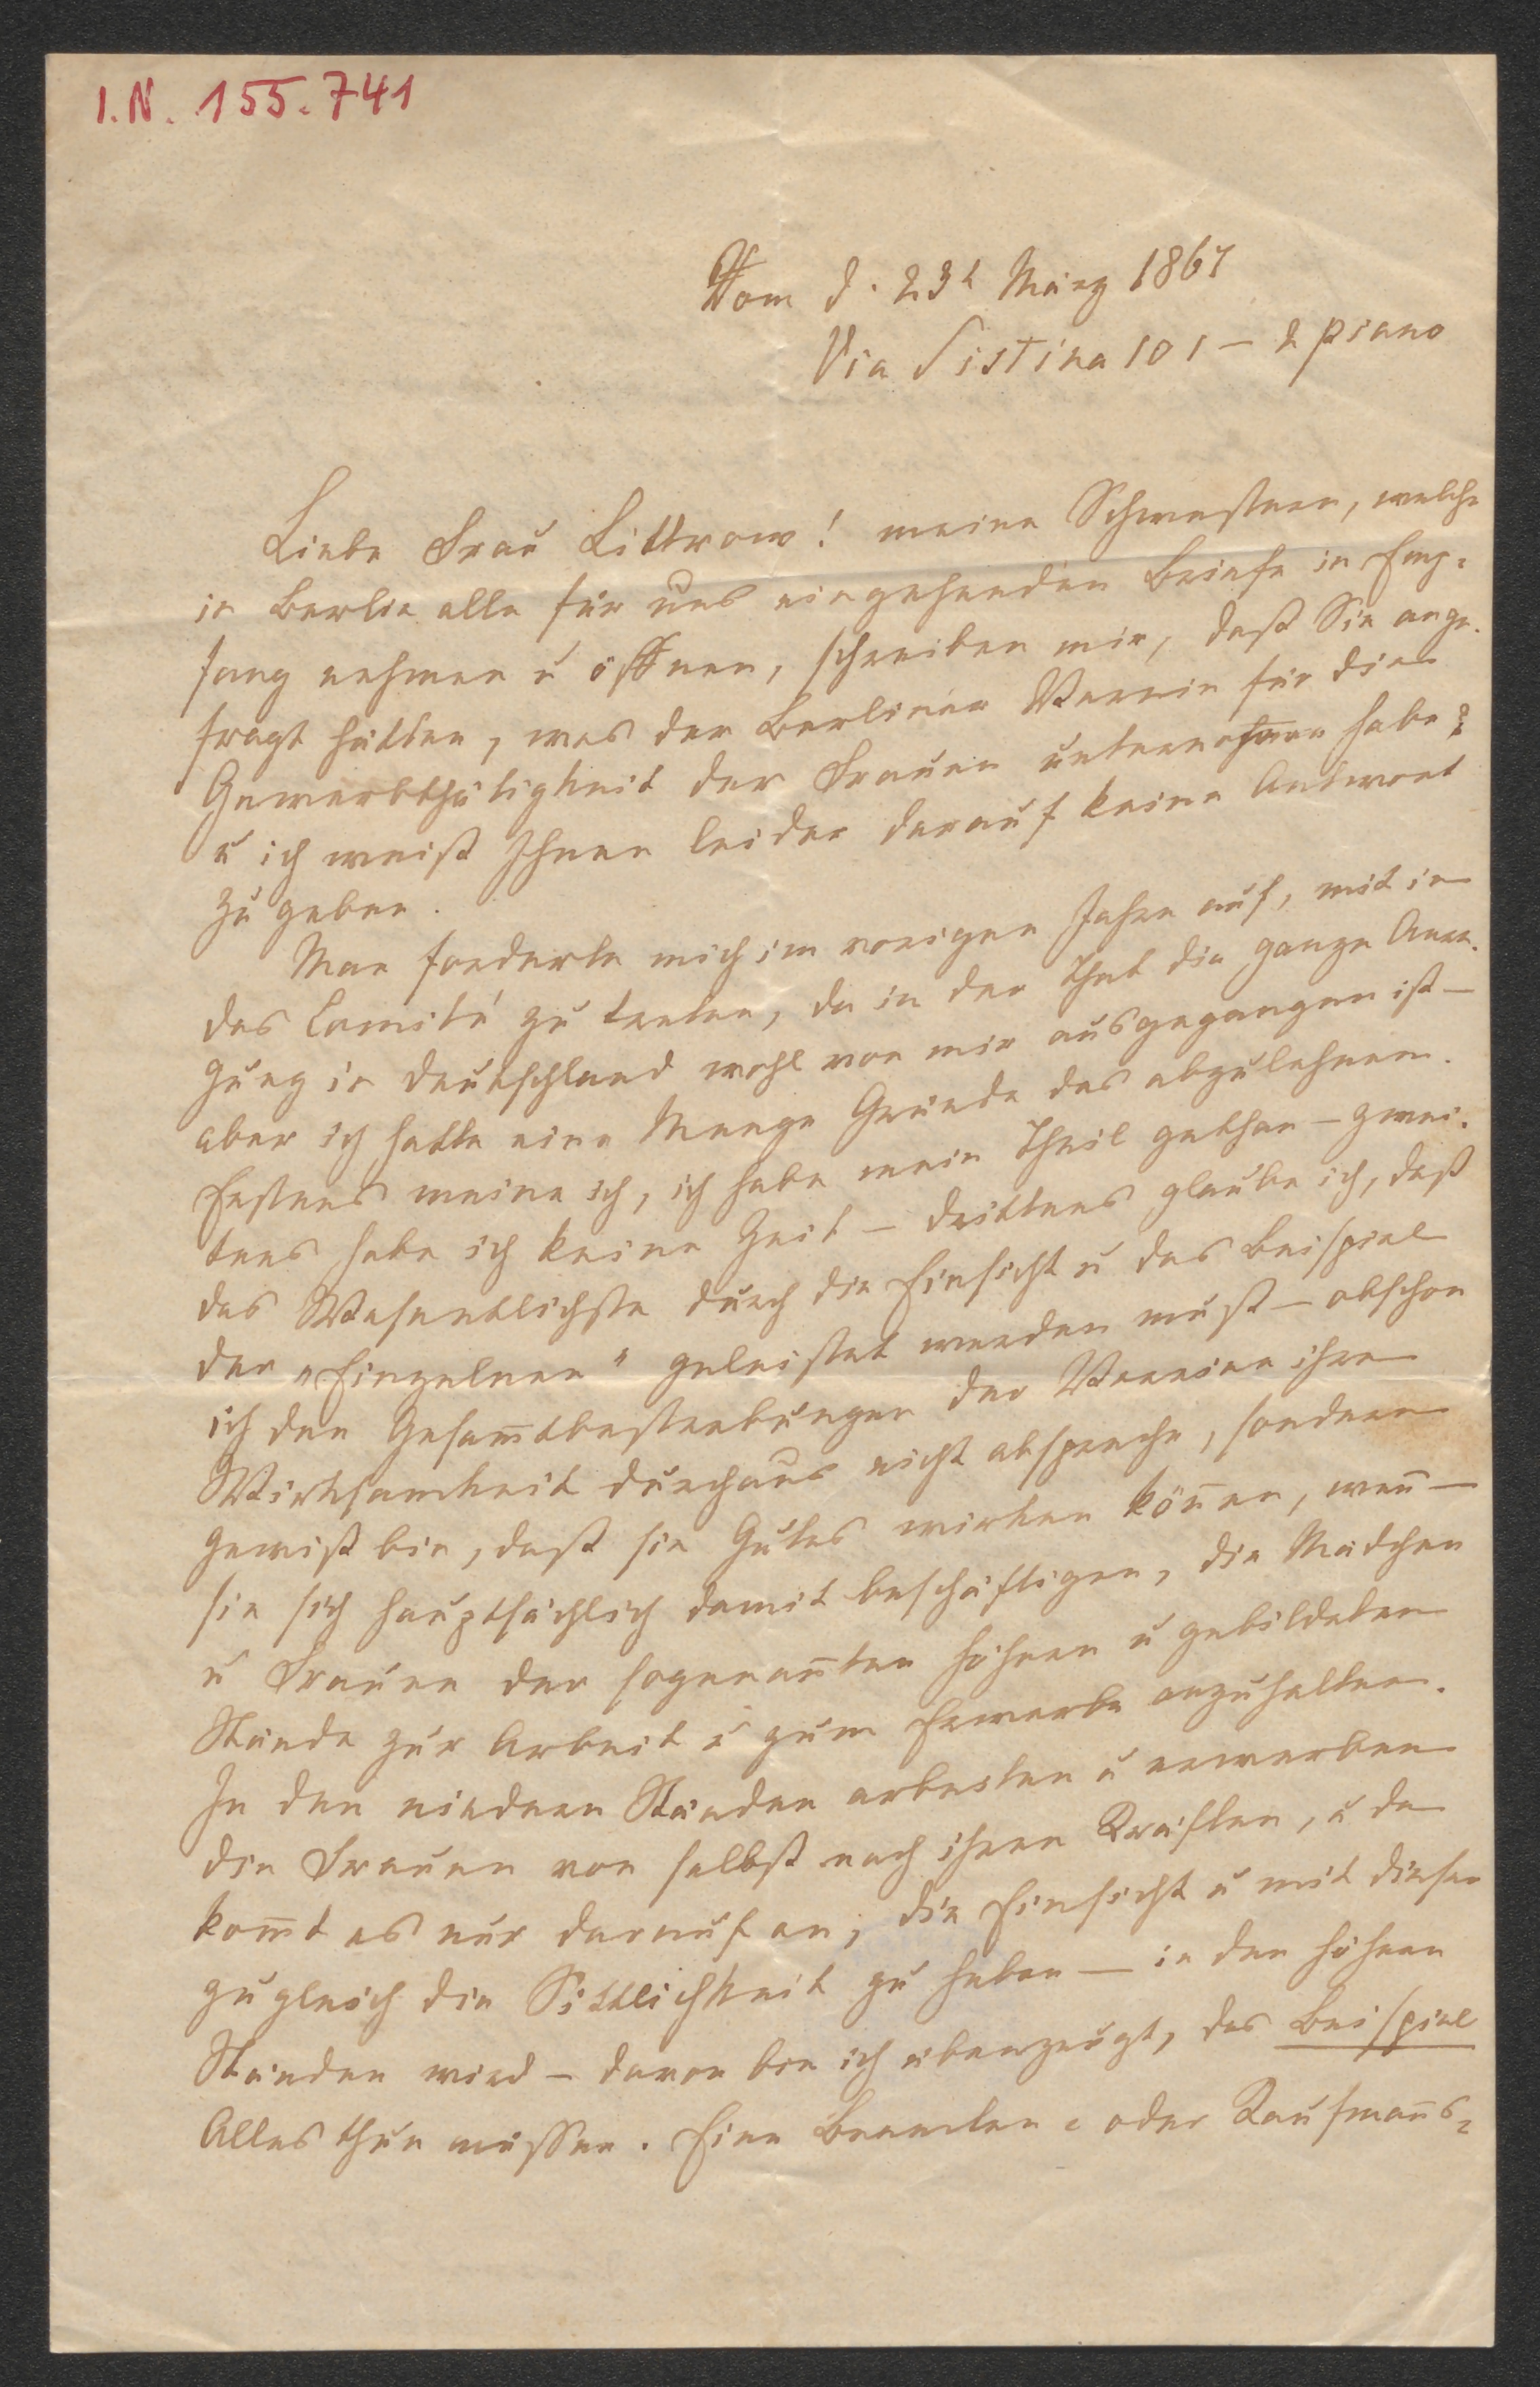 I.N. 155.741
Rom d. 23t März 1867
Via Sistina 101 – 2 piano
Liebe Frau Littrow! meine Schwestern, welche
in Berlin alle für uns eingehenden Briefe in Emp-
fang nehmen u öffnen, schreiben mir, daß Sie ange-
fragt hätten, was der Berliner Verein für die
Gewerbthätigkeit der Frauen unternohmen habe?
u ich weiß Ihnen leider darauf keine Antwort
zu geben.
Man forderte mich im vorigen Jahre auf, mit in
das Comité zu treten, da in der That die ganze Anre-
gung in Deutschland wohl von mir ausgegangen ist –
aber ich hatte eine Menge Gründe das abzulehnen.
Erstens meine ich, ich habe mein Theil gethan – zwei-
tens habe ich keine Zeit – drittens glaube ich, daß
das Wesentlichste durch die Einsicht u das Beispiel
der „Einzelnen" geleistet werden muß – obschon
ich den Gesam̄tbestrebungen der Vereine ihre
Wirksamkeit durchaus nicht abspreche, sondern
gewiß bin, daß sie Gutes wirken kön̄en, wen̄
sie sich hauptsächlich damit beschäftigen, die Mädchen
u Frauen der sogenan̄ten höhern u gebildeten
Stände zur Arbeit u zum Erwerbe anzuhalten.
In den niedern Ständen arbeiten u erwerben
die Frauen von selbst nach ihren Kräften, u da
kom̄t es nur darauf an, die Einsicht u mit dieser
zugleich die Sittlichkeit zu heben – in den höhern
Ständen wird – davon bin ich überzeugt, das Beispiel
Alles thun müssen. Eine Beamten- oder Kaufman̄s-